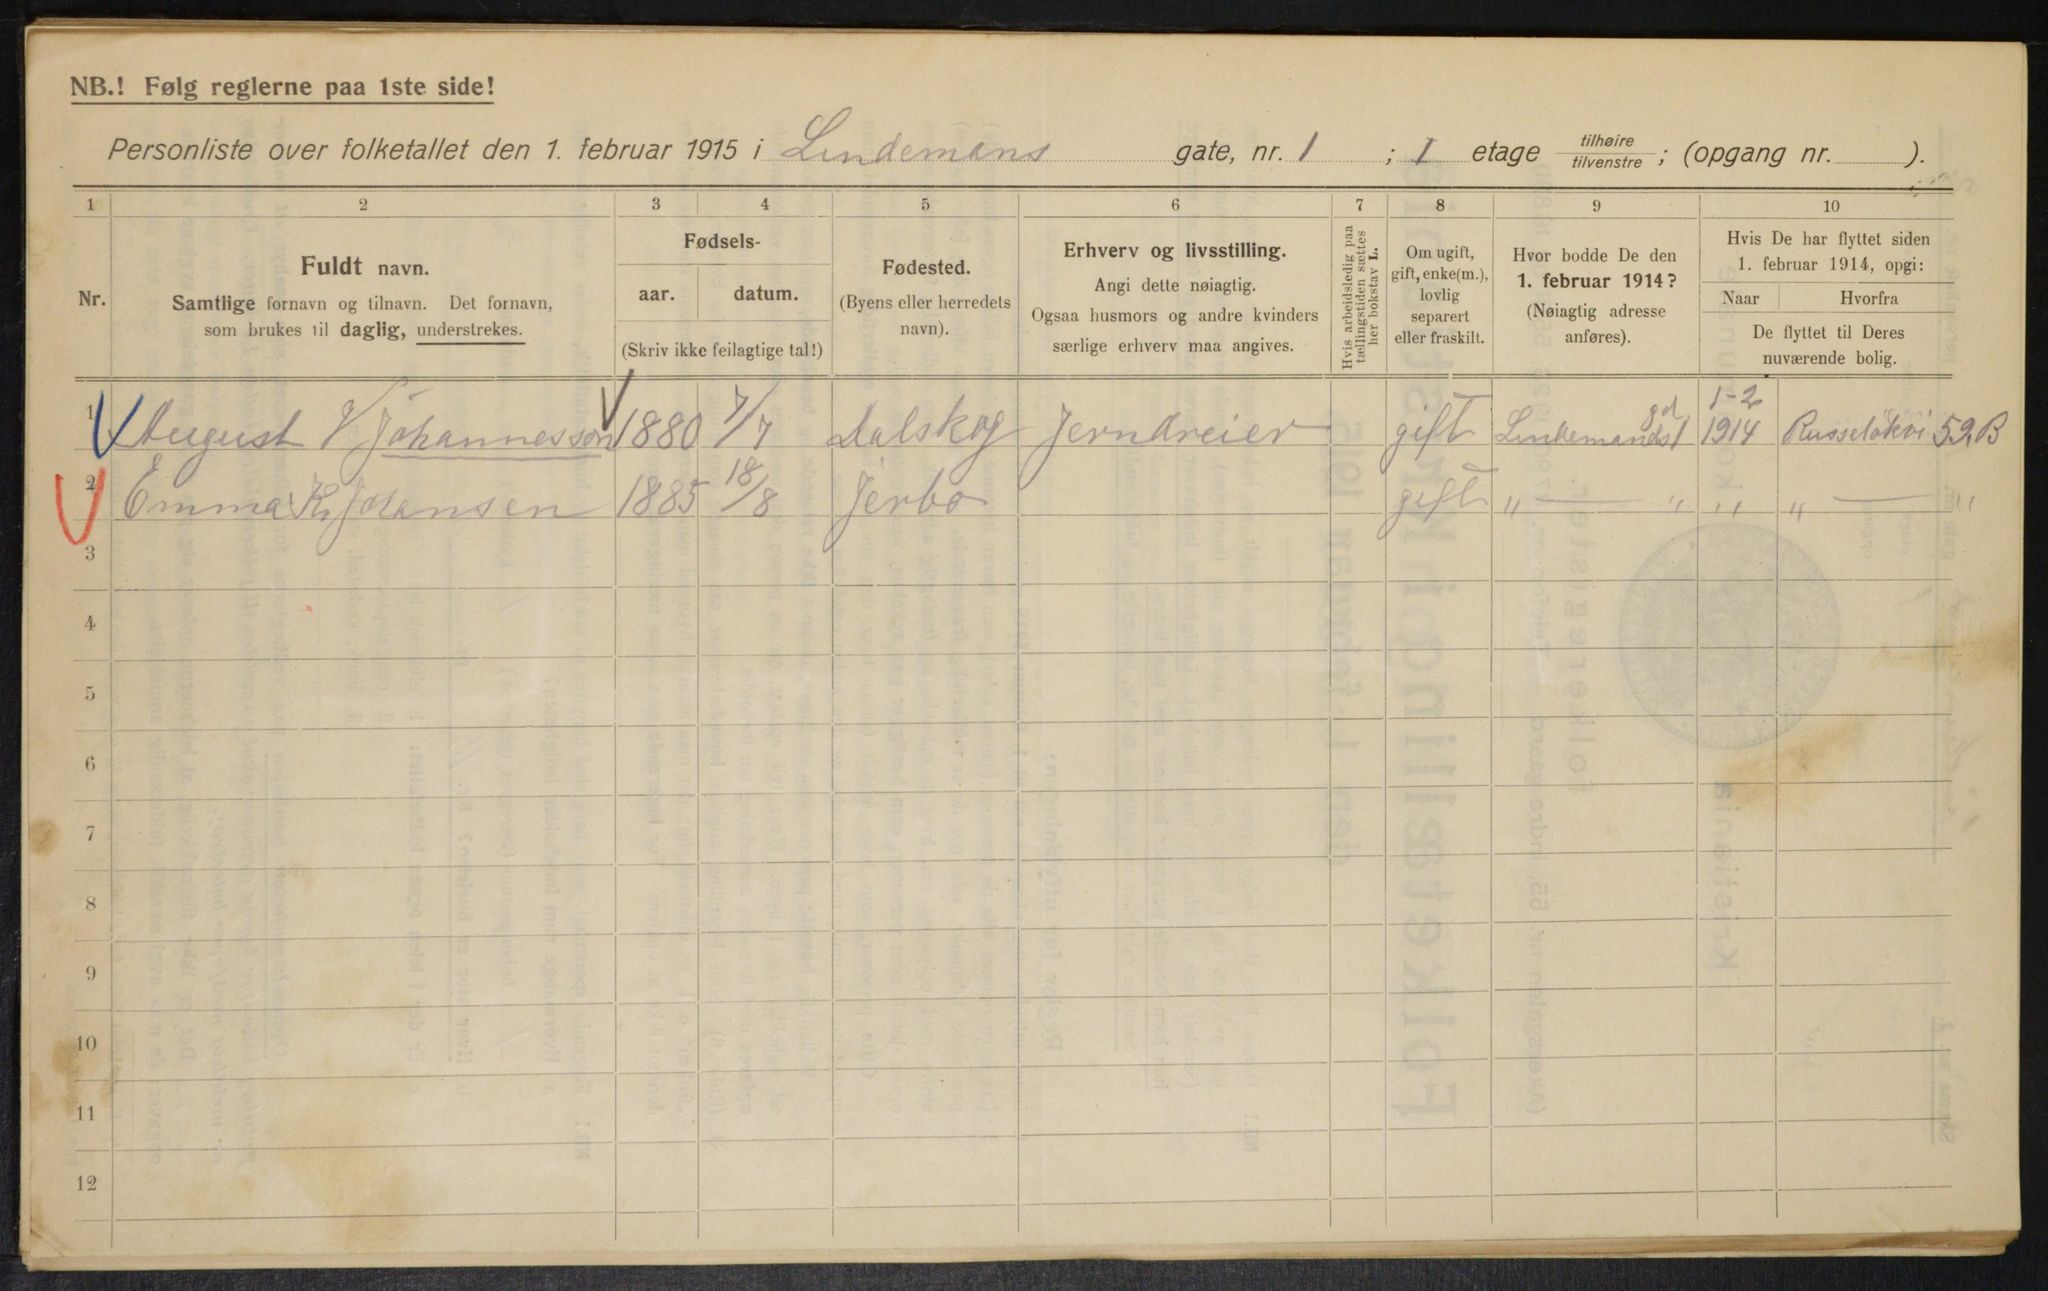 NB.! Følg reglerne paa 1ste side!
Personliste over folketallet den 1. februar 1915 i Lindemans gate, nr. 1 ; I etage tilhøire/tilvenstre ; (opgang nr. ).
1 2 3 4 5 6 7 8 9 10
Nr.
Fuldt navn.
Samtlige fornavn og tilnavn. Det fornavn,
som brukes til daglig, understrekes.
Fødsels-
aar. datum.
(Skriv ikke feilagtige tal!)
Fødested.
(Byens eller herredets
navn).
Erhverv og livsstilling.
Angi dette nøiagtig.
Ogsaa husmors og andre kvinders
særlige erhverv maa angives.
Hvis arbeidsledig paa
tællingstiden sættes
her bokstav L.
Om ugift,
gift, enke(m.),
lovlig
separert
eller fraskilt.
Hvor bodde De den
1. februar 1914?
(Nøiagtig adresse
anføres).
Hvis De har flyttet siden
1. februar 1914, opgi:
Naar Hvorfra
De flyttet til Deres
nuværende bolig.
1 August V Johannesson 1880 7/7 Dalskog Jerndreier gift Lindemands gd 1 1-2 1914 Russeløkvi 59, B
2 Emma K. Johansen 1885 18/8 Jerbo gift " — " " " — "
3
4
5
6
7
8
9
10
11
12